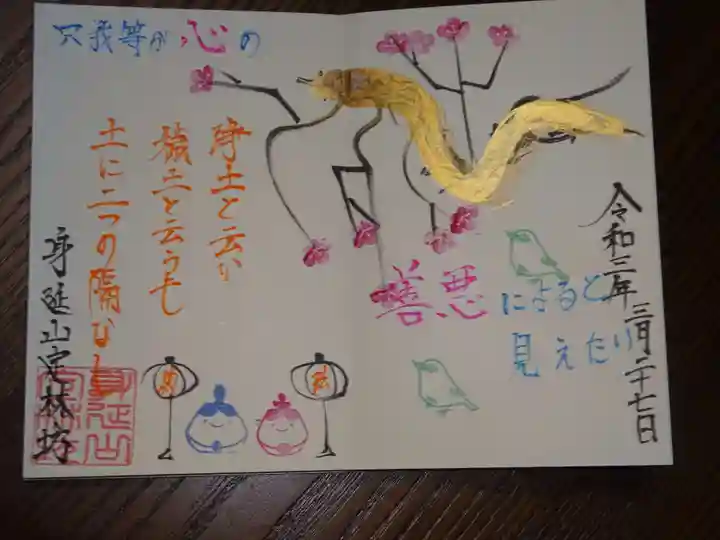 浄土と云い
穢土と云うも
土に二つの隔なし
只我等が心の
善悪によると
見えたり
令和三年 三月二十七日
身延山定林坊